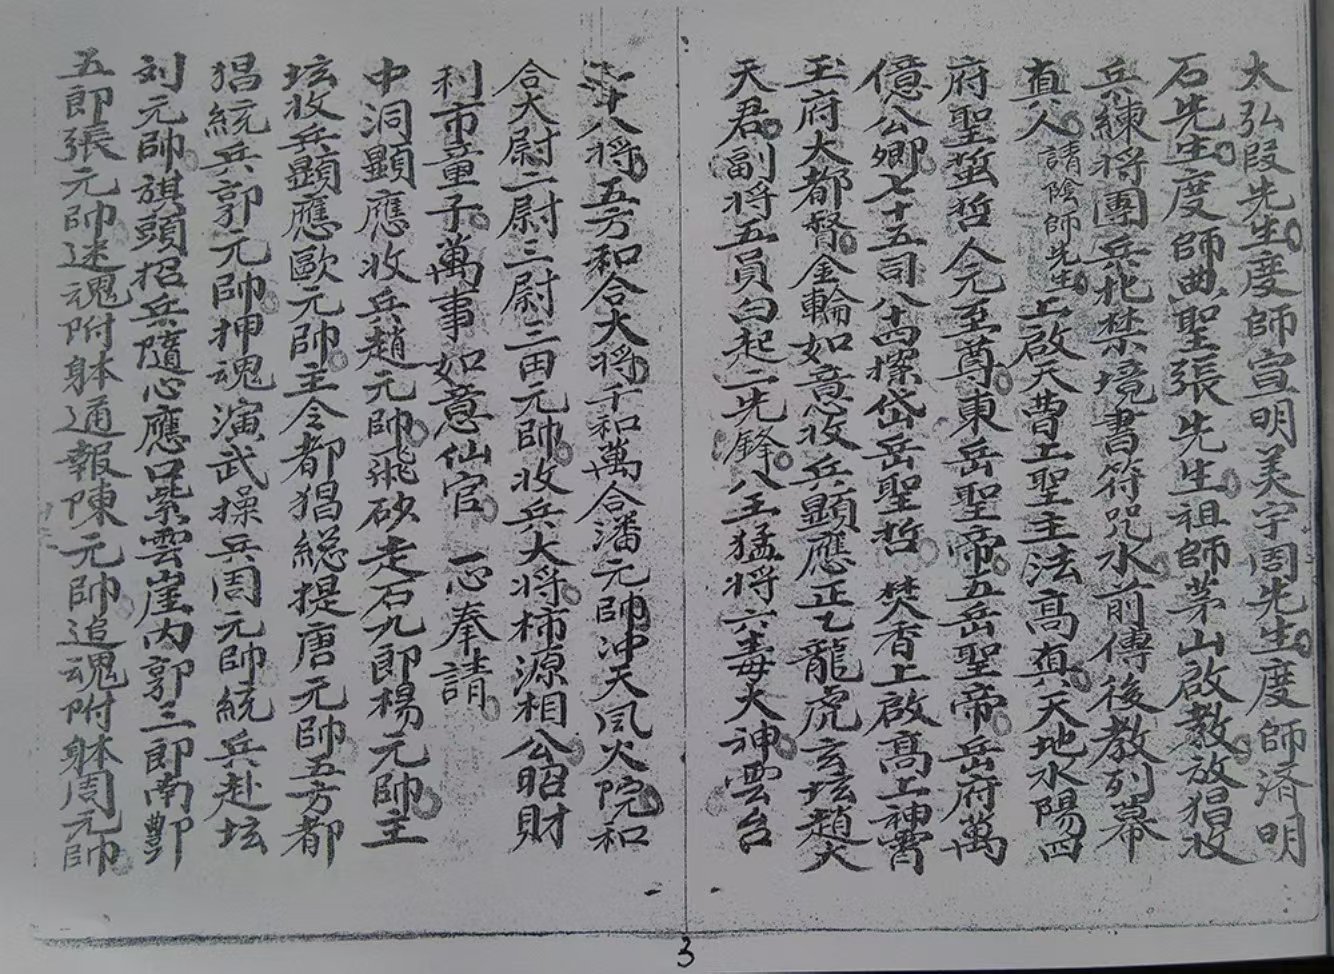 太弘叚先生度師宣明美字周先生度師済明
石先生度師典聖張先生祖師茅山啟教放猖收
兵練将團兵北禁境書符咒水前傳後教列幕
真人請陰師先生上啟天曹工聖主法高真天地水陽四
府聖蜇哲人元至尊東岳聖帝五岳聖帝岳府萬
億公卿七十五司八十四搩岱岳聖哲 焚香上啟高上神霄
玉府大都督金輪如意收兵顯應正乙龍虎玄坛趙大
天君副将五員白起二先鋒八王猛将六毒大神雲台
二十八将五方和合大将千和萬合潘元帥冲天風火院和
合大尉二尉三尉三田元帥收兵大将柿源相公昭財
利市童子萬事如意仙官 一心奉請
中洞顯應收兵趙元帥飛砂走石九郎楊元帥主
坛收兵顯應歐元帥主令都猖総提唐元帥五方都
猖統兵郭元帥押魂演武操兵周元帥統兵赴坛
刘元帥旗頭招兵隨心應口紫雲崖内郭三郎南酆
五郎張元帥迷魂附躰通報陳元帥追魂附躰周元帥
3